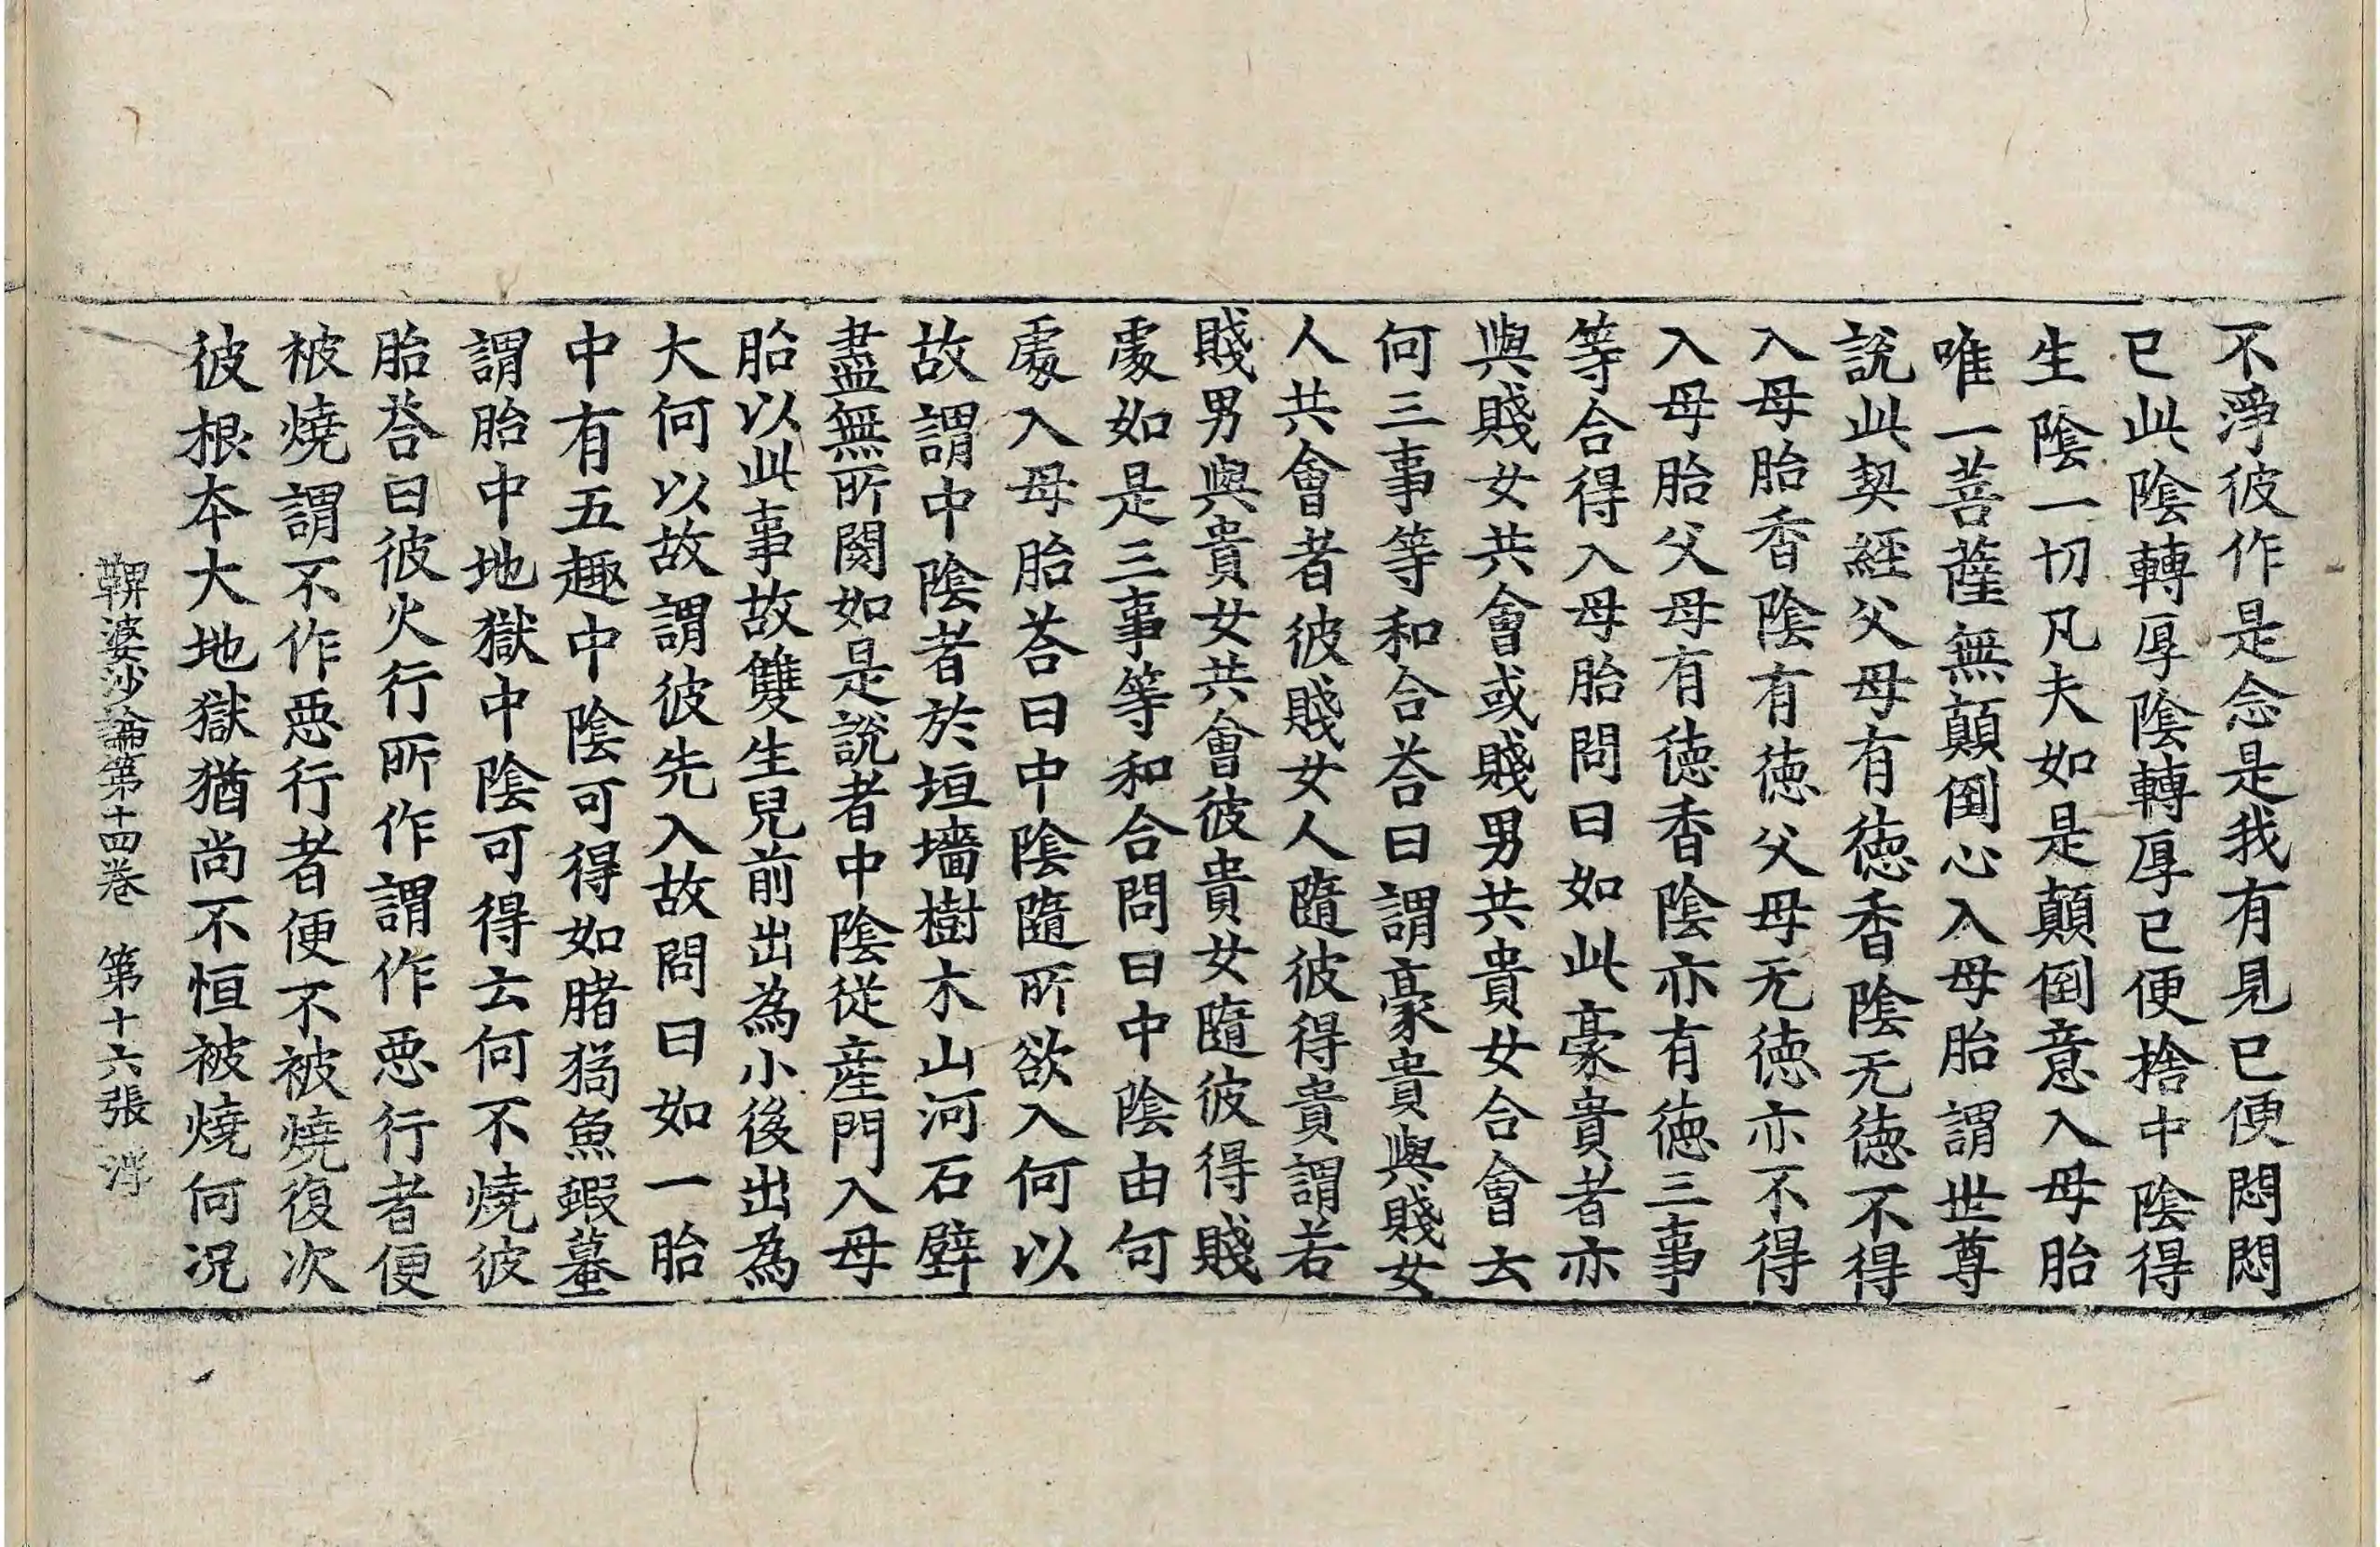 不淨彼作是念是我有見已便悶悶
已此陰轉厚陰轉厚已便捨中陰得
生陰一切凡夫如是顛倒意入母胎
唯一菩薩無顛倒心入母胎謂世尊
說此契經父母有德香陰无德不得
入母胎香陰有德父母无德亦不得
入母胎父母有德香陰亦有德三事
等合得入母胎問曰如此豪貴者亦
與賤女共會或賤男共貴女合會云
何三事等和合荅曰謂豪貴與賤女
人共會者彼賤女人隨彼得貴謂若
賤男與貴女共會彼貴女隨彼得賤
處如是三事等和合問曰中陰由何
處入母胎荅曰中陰隨所欲入何以
故謂中陰者於垣墻樹木山河石壁
盡無所閡如是說者中陰從産門入母
胎以此事故雙生兒前出為小後出為
大何以故謂彼先入故問曰如一胎
中有五趣中陰可得如睹猲魚蝦蟇
謂胎中地獄中陰可得云何不燒彼
胎荅曰彼火行所作謂作惡行者便
被燒謂不作惡行者便不被燒復次
彼根本大地獄猶尚不恒被燒何況
鞞婆沙論第十四卷　第十六張